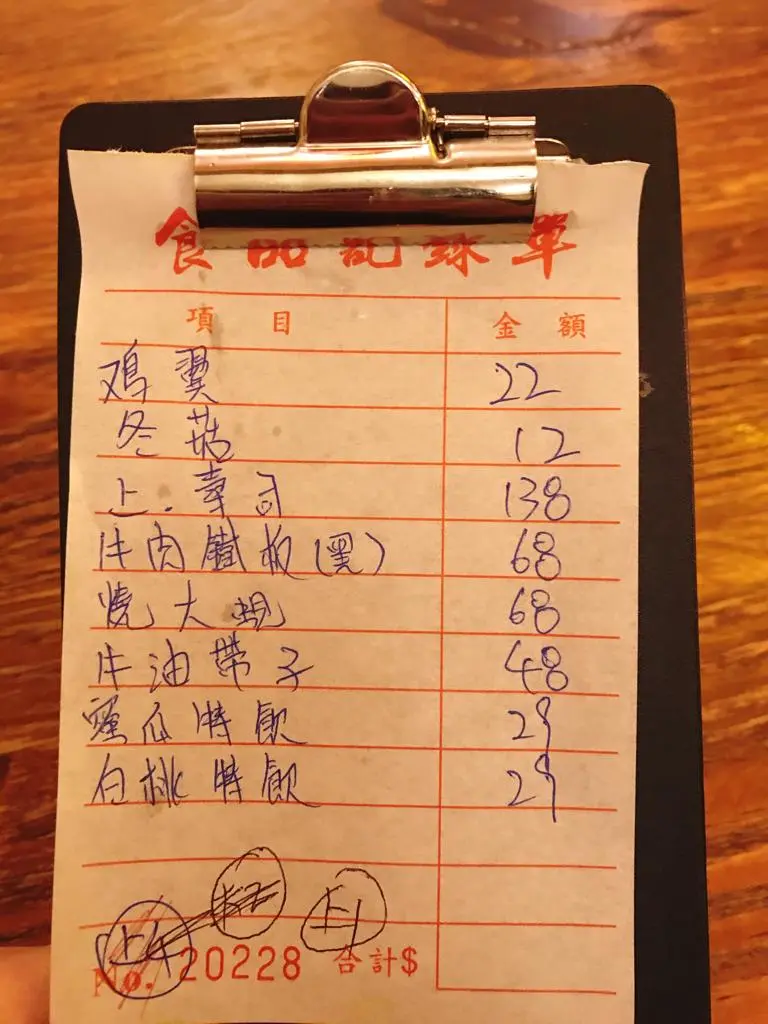 食品記錄單
項目 金額
鸡翼 22
冬菇 12
上.壽司 138
牛肉鐵板(黑) 68
燒大蜆 68
牛油帶子 48
蜜瓜特飲 29
白桃特飲 29
上1
No. 20228 合計$